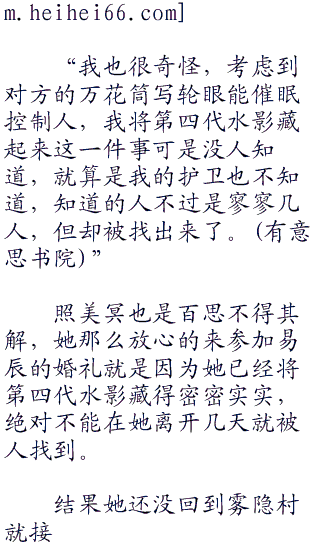 m.heihei66.com]
“我也很奇怪，考虑到
对方的万花筒写轮眼能催眠
控制人，我将第四代水影藏
起来这一件事可是没人知
道，就算是我的护卫也不知
道，知道的人不过是寥寥几
人，但却被找出来了。(有意
思书院)”
照美冥也是百思不得其
解，她那么放心的来参加易
辰的婚礼就是因为她已经将
第四代水影藏得密密实实，
绝对不能在她离开几天就被
人找到。
结果她还没回到雾隐村
就接